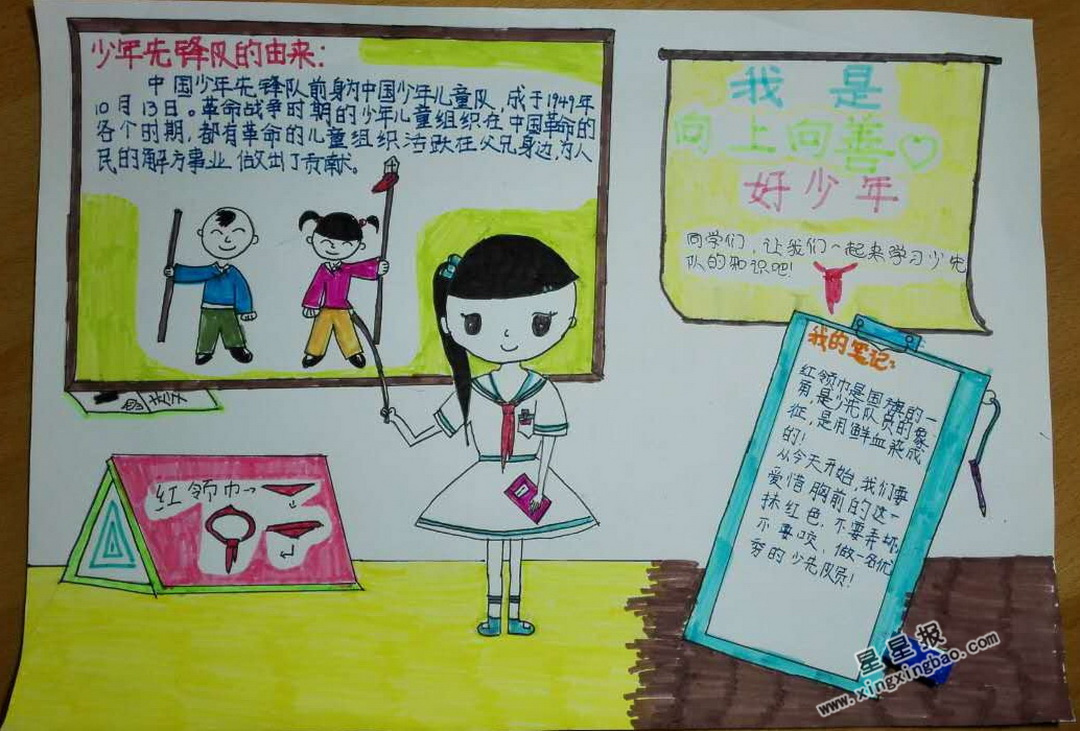 少年先锋队的由来：
中国少年先锋队前身为中国少年儿童队，成于1949年
10月13日。革命战争时期的少年儿童组织在中国革命的
各个时期，都有革命的儿童组织活跃在父兄身边，为人
民的解方事业做出了贡献。
我是
向上向善
好少年
同学们，让我们一起来学习少先
队的知识吧！
我的笔记：
红领巾是国旗的一
角，是少先队员的象
征，是用鲜血染成
的！
从今天开始，我们要
爱惜胸前的这一
抹红色，不要弄坏
不要咬，做一名优
秀的少先队员！
红领巾→
星星报
www.xingxingbao.com